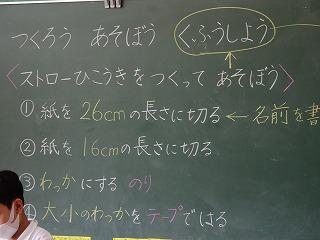 つくろう あそぼう くふうしよう
〈ストローひこうきをつくって あそぼう〉
① 紙を 26cmの長さに切る ← 名前を書
② 紙を 16cmの長さに切る
③ わっかにする のり
④ 大小のわっかをテープではる